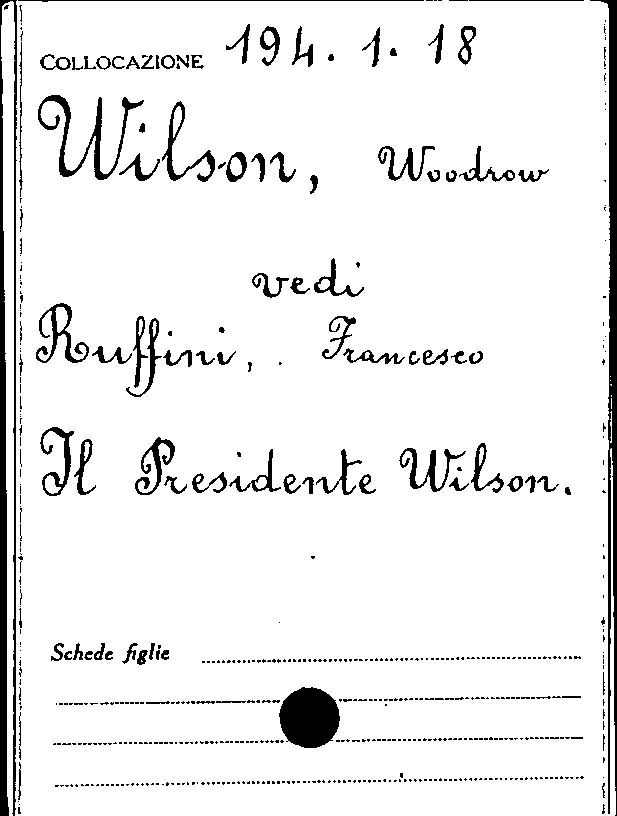 COLLOCAZIONE 194. 1. 18
Wilson, Woodrow
vedi
Ruffini, Francesco
Il Presidente Wilson.
Schede figlie